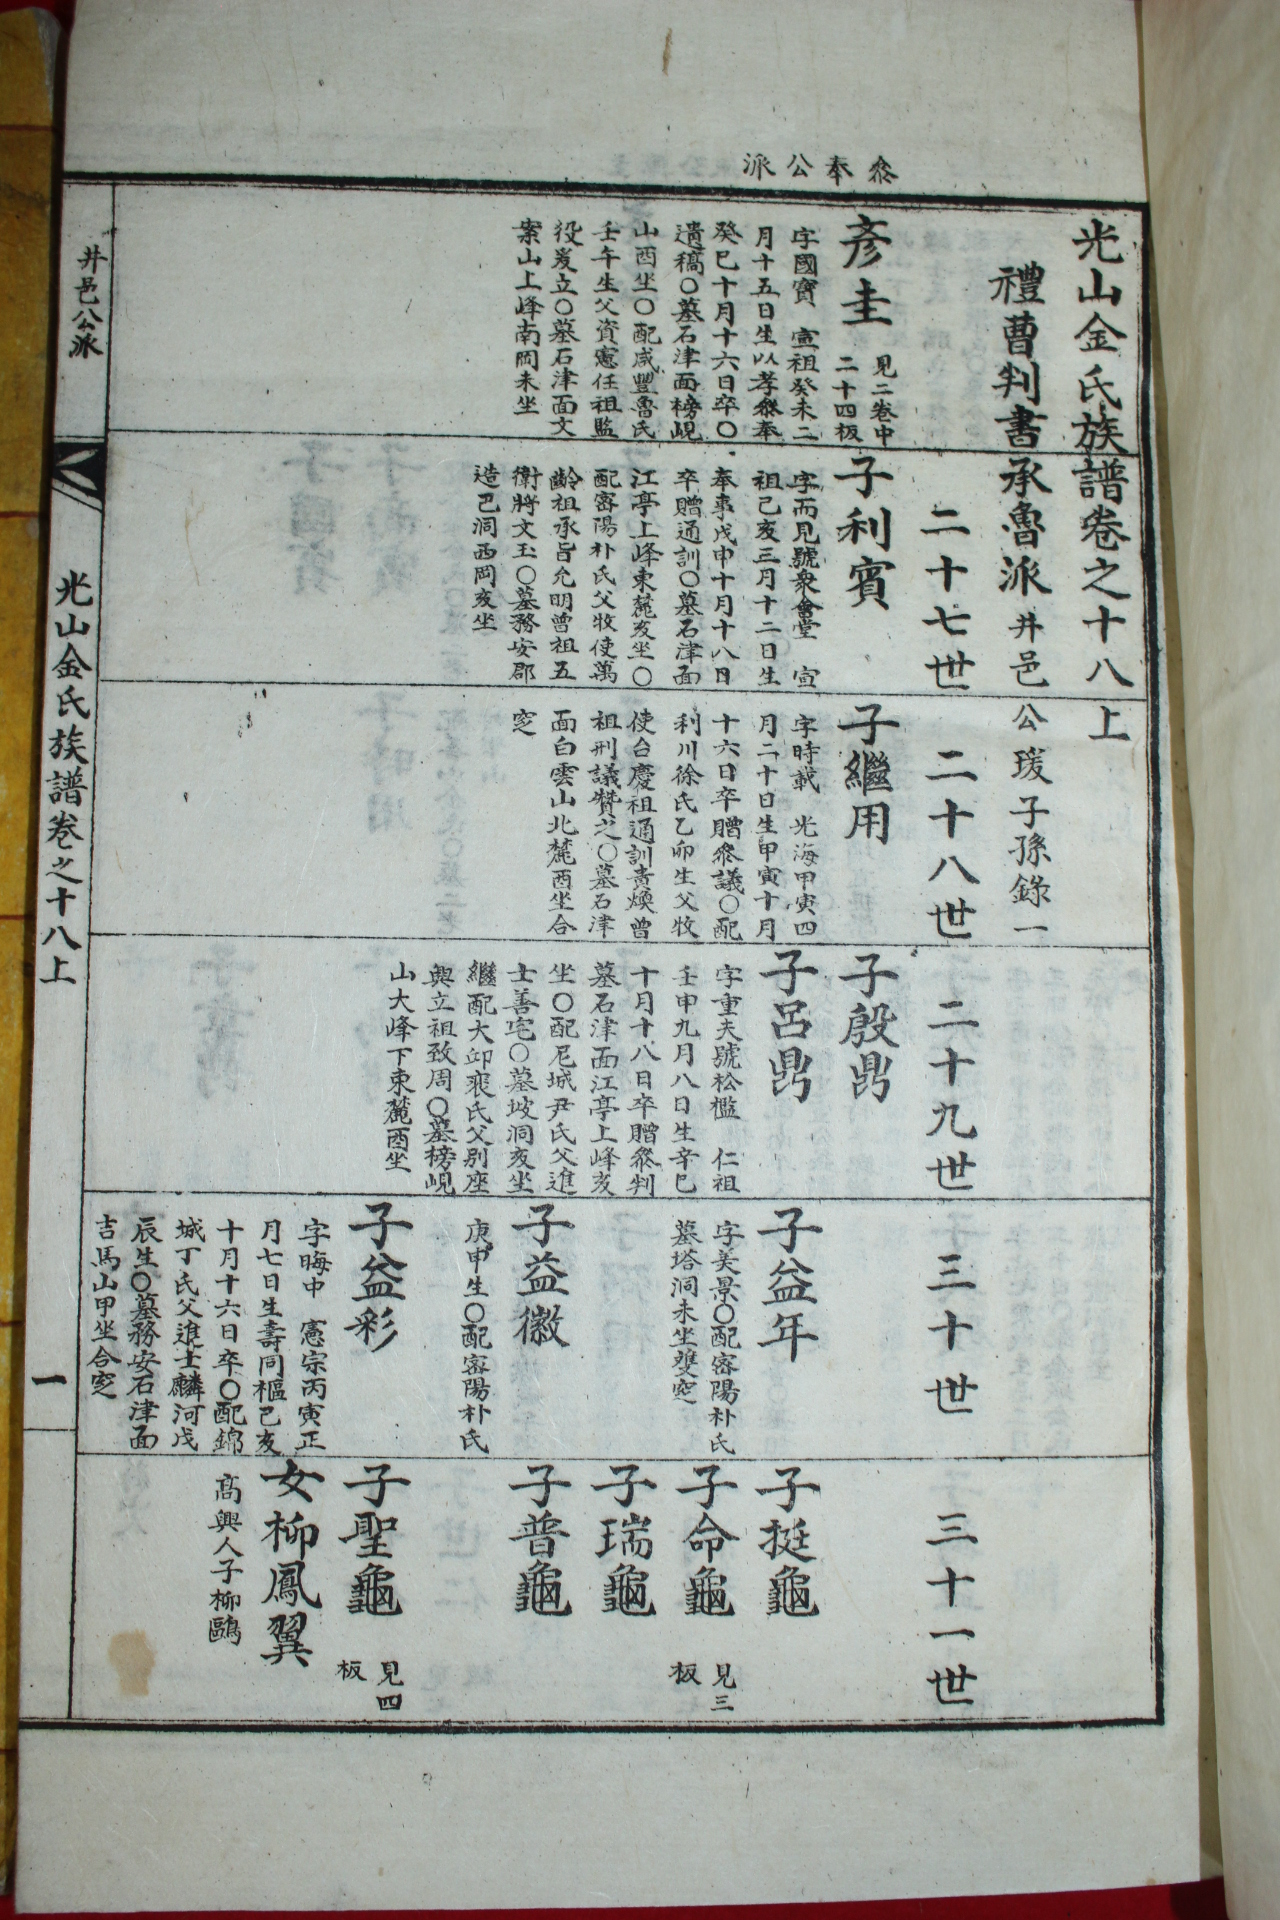 參奉公派
光山金氏族譜卷之十八上
禮曹判書承魯派井邑公瑗子孫錄一
二十七世
二十八世
二十九世
三十世
三十一世
彥圭
見二卷中
二十四板
字國寶 宣祖癸未二
月十五日生以孝參奉
癸巳十月十六日卒〇
遺稿〇墓石津面榜峴
山酉坐〇配咸豐魯氏
壬午生父資憲任祖監
役爰立〇墓石津面文
案山上峰南岡未坐
子利賓
字而見號衆會堂 宣
祖己亥三月十二日生
奉事戊申十月十八日
卒贈通訓〇墓石津面
江亭上峰東麓亥坐〇
配密陽朴氏父牧使萬
齡祖承旨允明曾祖五
衛將文玉〇墓務安郡
造巴洞西岡亥坐
子繼用
字時載 光海甲寅四
月二十日生甲寅十月
十六日卒贈參議〇配
利川徐氏乙卯生父牧
使台慶祖通訓責煥曾
祖刑議贊之〇墓石津
面白雲山北麓酉坐合
窆
子殷鼎
子呂鼎
字重夫號松檻 仁祖
壬申九月八日生辛巳
十月十八日卒贈參判
墓石津面江亭上峰亥
坐〇配尼城尹氏父進
士善宅〇墓坡洞亥坐
繼配大邱裵氏父別座
興立祖致周〇墓榜峴
山大峰下東麓酉坐
子益年
字美景〇配密陽朴氏
墓塔洞未坐雙窆
子益徽
庚申生〇配密陽朴氏
子益彩
字晦中 憲宗丙寅正
月七日生壽同樞己亥
十月十六日卒〇配錦
城丁氏父進士麟河戊
辰生〇墓務安石津面
吉馬山甲坐合窆
子挺龜
子命龜
見三
板
子瑞龜
子普龜
子聖龜
見四
板
女柳鳳翼
高興人子柳鷗
井邑公派
光山金氏族譜卷之十八上
一